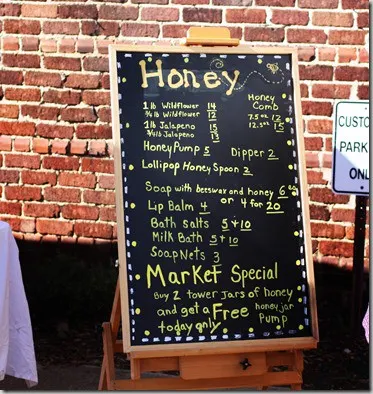 Honey
Honey
Comb
1 lb Wildflower 14
3/4 lb Wildflower 12
7.5 oz 12
12.5 oz 15
1 lb Jalapeno 15
3/4 lb Jalapeno 13
Honey Pump 5
Dipper 2
Lollipop Honey Spoon 2
Soap with beeswax and honey 6 ea
or 4 for 20
Lip Balm 4
Bath salts 5 + 10
Milk Bath 5 + 10
Soap Nets 3
Market Special
Buy 2 tower Jars of honey
and get a Free honey jar
Pump
today only
CUSTO
PARK
ONL